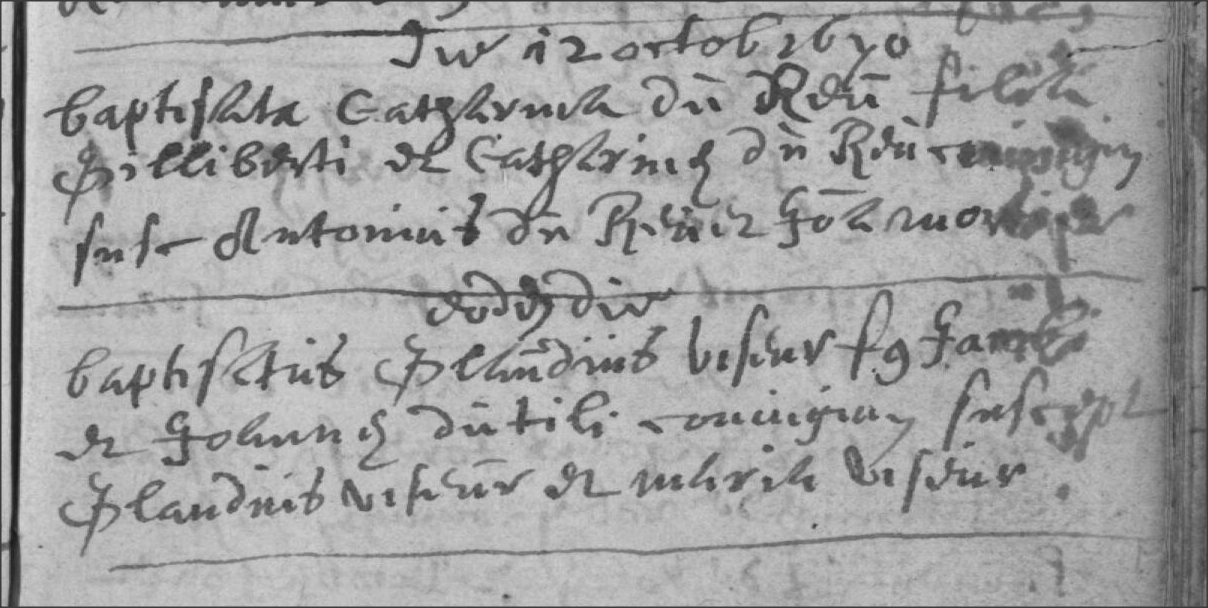 Die 12 octob 1670
baptisata Catharina du Rŏu filia
Gilliberti et Catharinę du Rŏu coniugum
susc Antonius du Rŏu et Joā
eodē die
baptisatus Claudius viseur f9 Jacobi
et Joannę dutili coniugum suscept
Claudius viseur et maria viseur